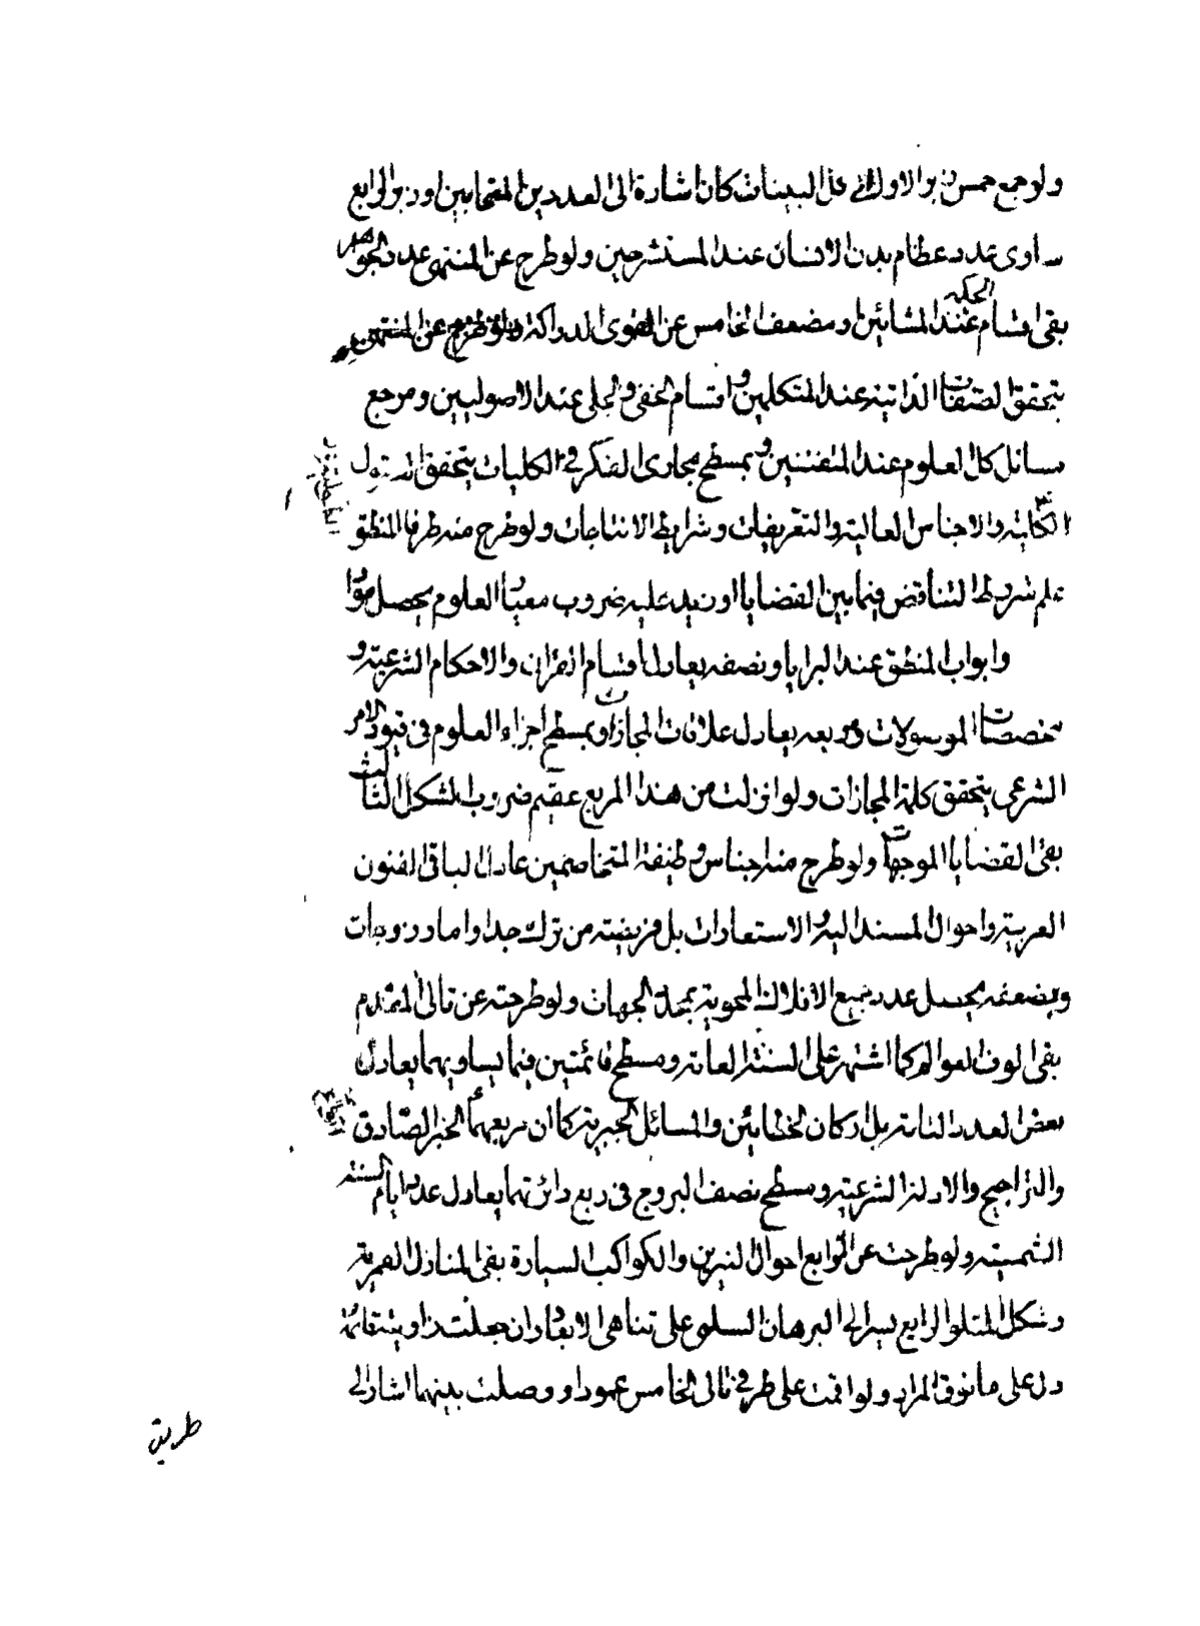 ولو جمع خمس زبر الاول الى قلل البينات كان اشارة الى العددين المتحابين او زبر الرابع
ساوى عدد عظام بدن الانسان عند المستشرحين ولو طرح عن المنتهى عدد الجواهر
بقى اقسام الحكمة عند المشائين ومضعف الخامس عن القوى الدراكة ولو طرح عن المنتهى
يتحقق الصفات الذاتية عند المتكلمين واقسام الخفى والجلى عند الاصوليين ومرجع
مسائل كل العلوم عند المتفننين وبمسطح مجارى الفكر فى الكليات يتحقق
والاجناس العالية والتعريفات وشرايط الانتاجات ولو طرح منه طرفا المنطق
علم شروط التناقض فيما بين القضايا او زيد عليه ضروب معيار العلوم يحصل مواد
وابواب المنطق عند البرايا ونصفه يعادل اقسام القران والاحكام الشرعية و
مخصصات الموصولات وربعه يعادل علاقات المجازات وبمسطح اجزاء العلوم فى قيود الامر
الشرعى يتحقق كلمة المجازات ولو انزلت من هذا المربع عقيم ضروب الشكل الثالث
بقى القضايا الموجهات ولو طرح منه اجناس وظيفة المتخاصمين عادل الباقى الفنون
العربية واحوال المسند اليه والاستعارات بل فريضة من ترك جدا واما وزوجات
وبضعفه يحصل عدد جميع الافلاك المحوية بمحدد الجهات ولو طرحته عن تالى المقدم
بقى الوف العوالم كما اشتهر على السنة العامة ومسطح قائمتين فيما يساويهما يعادل
بعض العدد التامة بل اركان الخطايين والمسائل الجبرية كما ان مربعهما الخبر الصادق
والتراجيح والادلة الشرعية ومسطح نصف البروج فى ربع دائرتهما يعادل عدد ايام السنة
الشمسية ولو طرحت عن الرابع احوال النيرين والكواكب السيارة بقى المنازل القمرية
وشكل المتلو الرابع يسير الى البرهان السلمى على تناهى الابعاد وان جعلت زاويته قائمة
دل على ما فوق المراد ولو اقمت على طرفى تالى الخامس عمودا ووصلت بينهما اشار الى
طريق